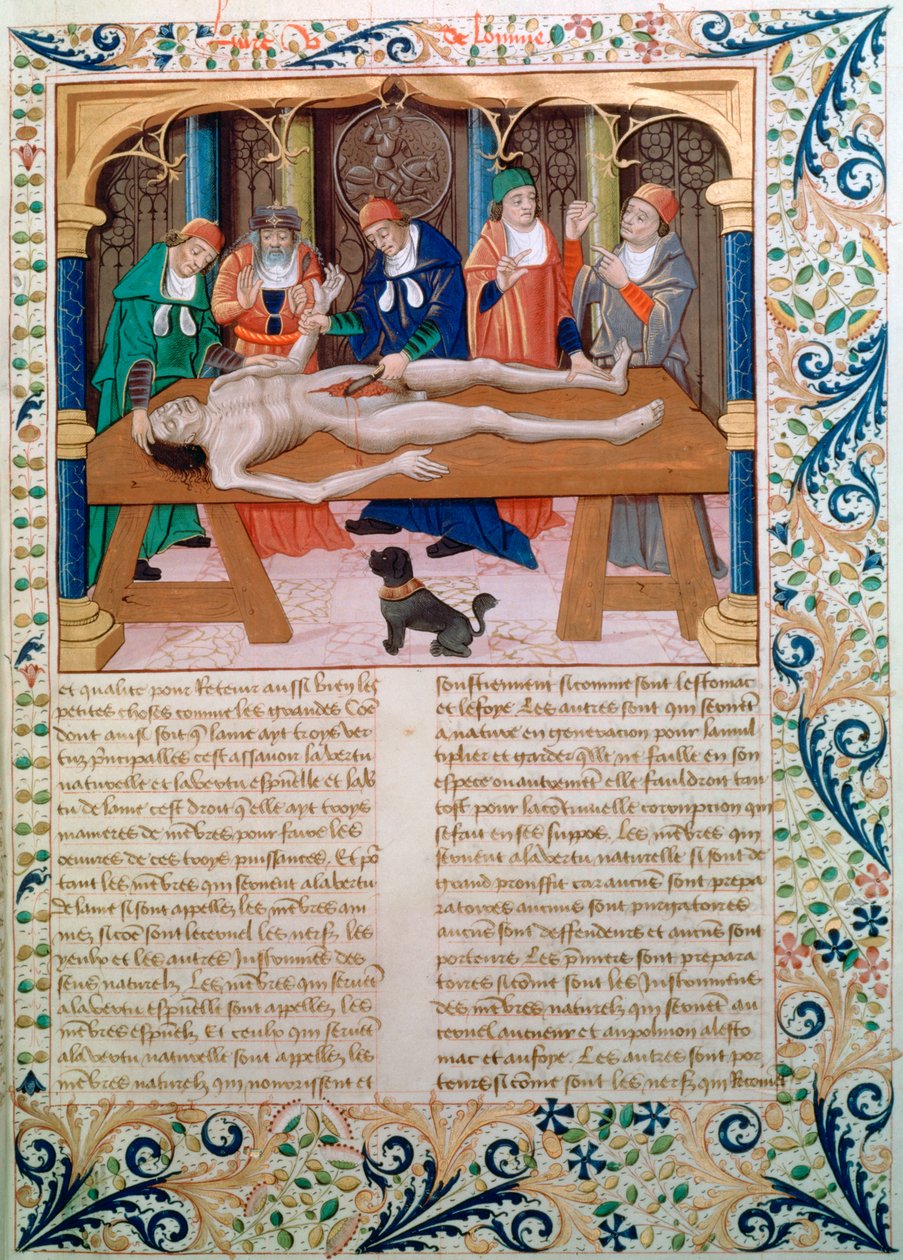 Liure V de lomme
et qualite pour retenir aussi bien les
petites choses comme les grandes Coe
dont ainsi soit q̄ lame ayt troys ver
tuz p̄ncipalles cest assauoir la vertu
naturelle et la vertu esp̄uelle et la v̄
tu de lame cest droit q̄lle ayt troys
manieres de mēbres pour faire les
oeuures de ces troys puissances. Et po᷑
tant les mēbres qui seruent a la vertu
de lame si sont appellez les mēbres ani
mez si cōe sont le ceruel les nerfz les
yeulx et les autres Instrumēs des
sens naturelz. Les mēbres qui seruēt
a la vertu esp̄uelle sont appellez les
mēbres esp̄uelz Et ceulx qui seruēt
a la vertu naturelle sont appellez les
mēbres naturelz qui nourrissent et
soustiennent si comme sont lestomac
et le foye. Les autres sont qui seruēt
a nature en generacion pour la mul
tiplier et garder q̄lle ne faille en son
espece ou autremēt elle fauldroit tan
tost pour la cōtinuelle corrupcion qui
se fait en ses suppos. Les mēbres qui
seruent a la vertu naturelle si sont de
grand prouffit car aucūs sont prepa
ratoires aucuns sont purgatoires
aucūs sont deffendeurs et aucūs sont
porteurs. Les p̄miers sont prepara
toires si cōme sont les Instrumētz
des mēbres naturelz qui seruēt au
ceruel au cueur et au polmon a lesto
mac et au foye. Les autres sont por
teurs si cōme sont les nerfz qui